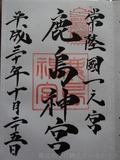 常陸國一之宮
鹿島神宮
平成三十年十月二十五日